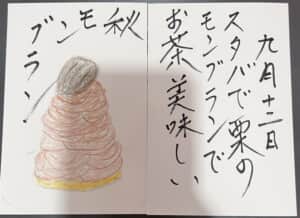 九月十二日
スタバで栗の
モンブランで
お茶美味しい
秋
モンブラン